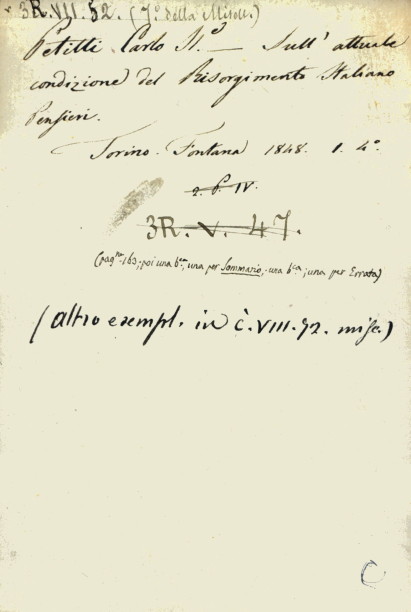 3R.VII.52. (7º della Miscell.)
Petitti Carlo II.º — Sull' attuale
condizione del Risorgimento Italiano
Pensieri.
Torino. Fontana 1848. 1. 4º
2. 6. IV.
3R. V. 47.
(pagne 163; poi una bca, una per Sommario, una bca; una per Errata)
(altro exempl. in C. VIII. 52. misc.)
C